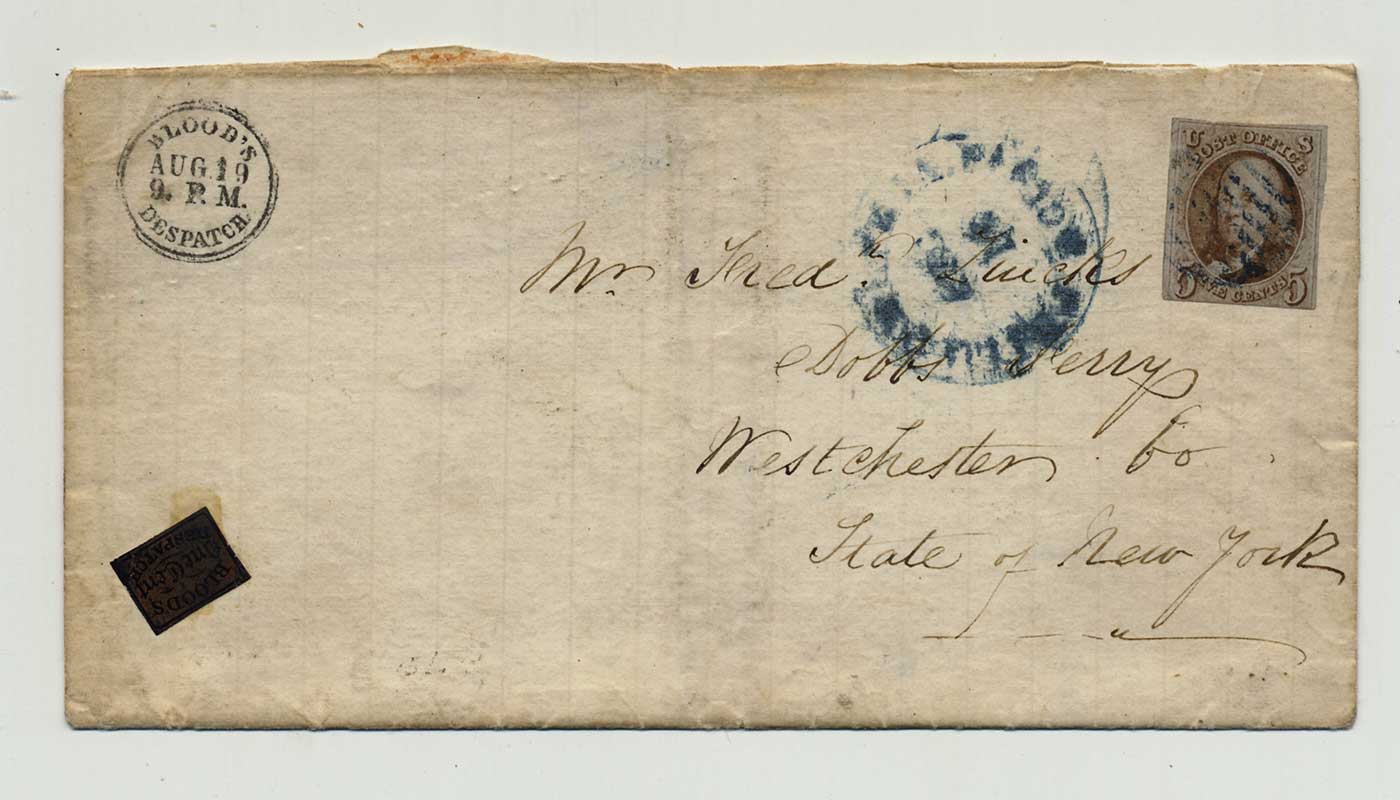 BLOOD'S
AUG. 19
9. P. M.
DESPATCH.
U S
POST OFFICE
FIVE CENTS
5 5
Mr. Fred.k Lincks
Dobbs Ferry
Westchester Co
State of New York
BLOOD'S
One Cent
DESPATCH